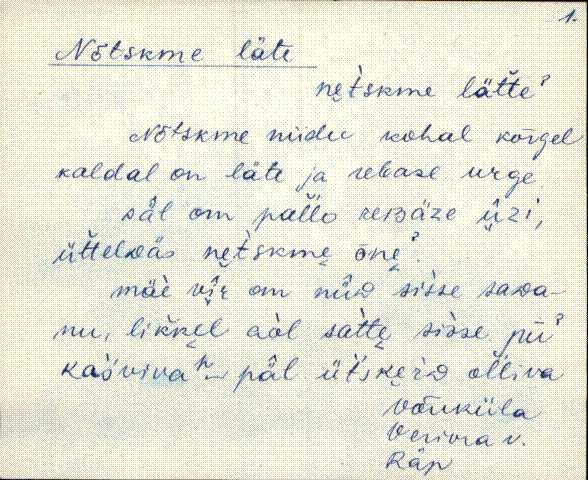 1.
Nõtskme läte
nętskme lätte?
Nõtskme niidu kohal kõrgel
kaldal on läte ja rebase urge.
säl om pallo rebäze ûzi,
üttelwäs nętskmę õnę?
mäe vîr om nüd sisse sawa-
nu, likkęl aòl sàttę sisse, pü?
kaśviva päl ütskerd olliva
Võruküla
Veriora v.
Räp